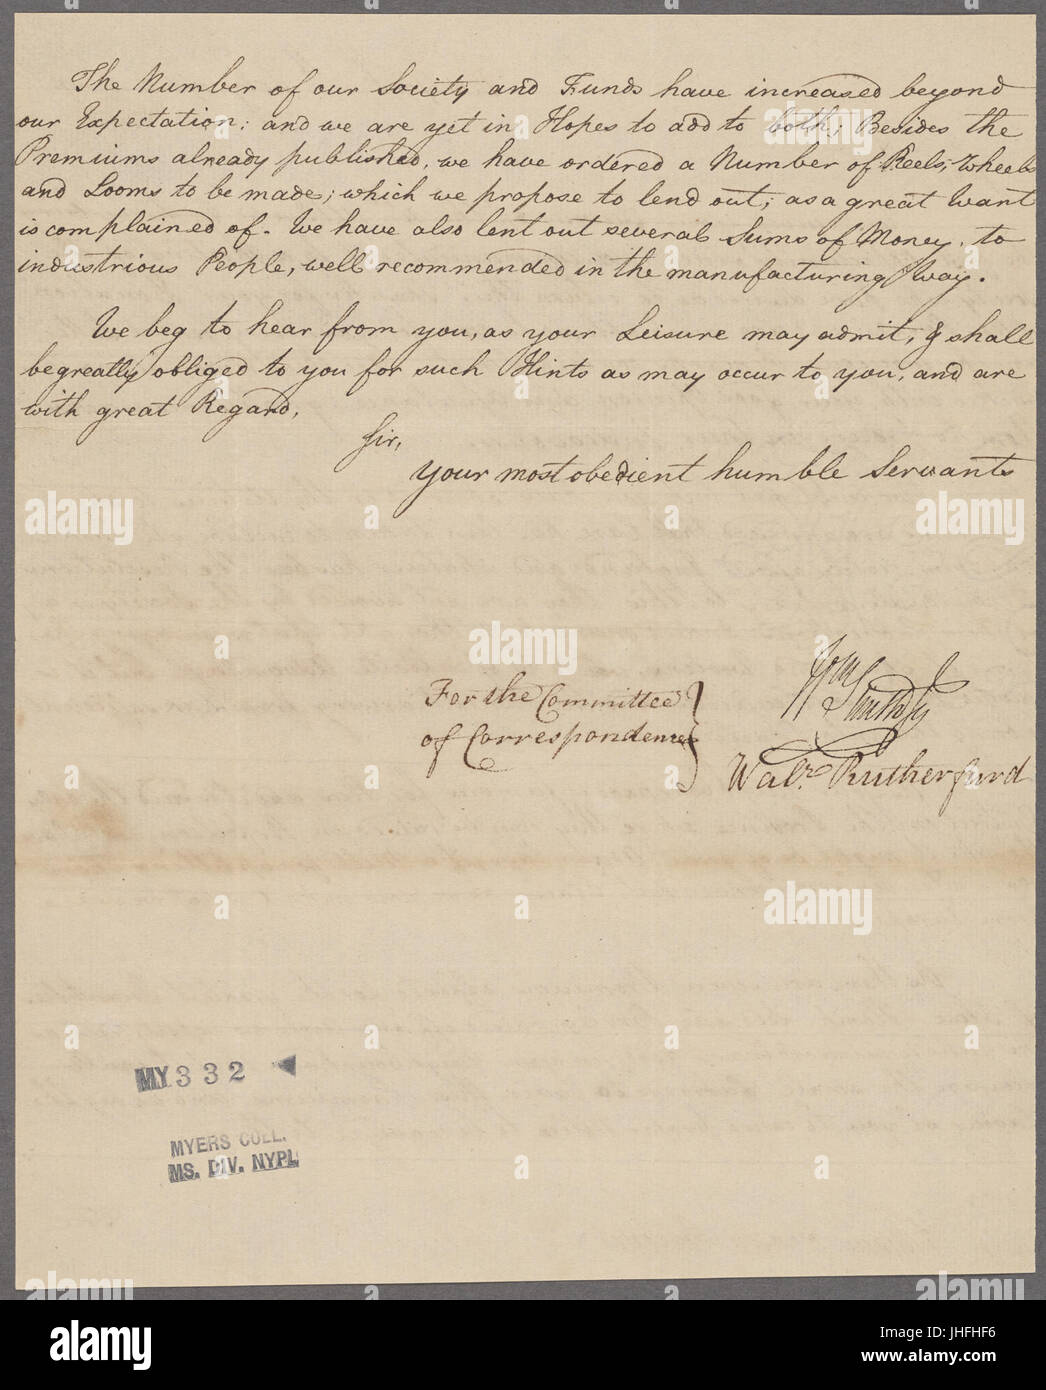 The Number of our Society and Funds have increased beyond
our Expectation: and we are yet in Hopes to add to both; Besides the
Premiums already published, we have ordered a Number of Reels, Wheels
and Looms to be made; which we propose to lend out; as a great Want
is complained of. We have also lent out several Sums of Money, to
industrious People, well recommended in the manufacturing way.
We beg to hear from you, as your Leisure may admit, & shall
be greatly obliged to you for such Hints as may occur to you, and are
with great Regard,
Sir,
Your most obedient humble Servants
For the Committee
of Correspondence
Wm Smith Jr
Walr. Rutherfurd
MY 332
MYERS COLL.
MS. DIV. NYPL
alamy
alamy stock photo
JHFHF6
www.alamy.com